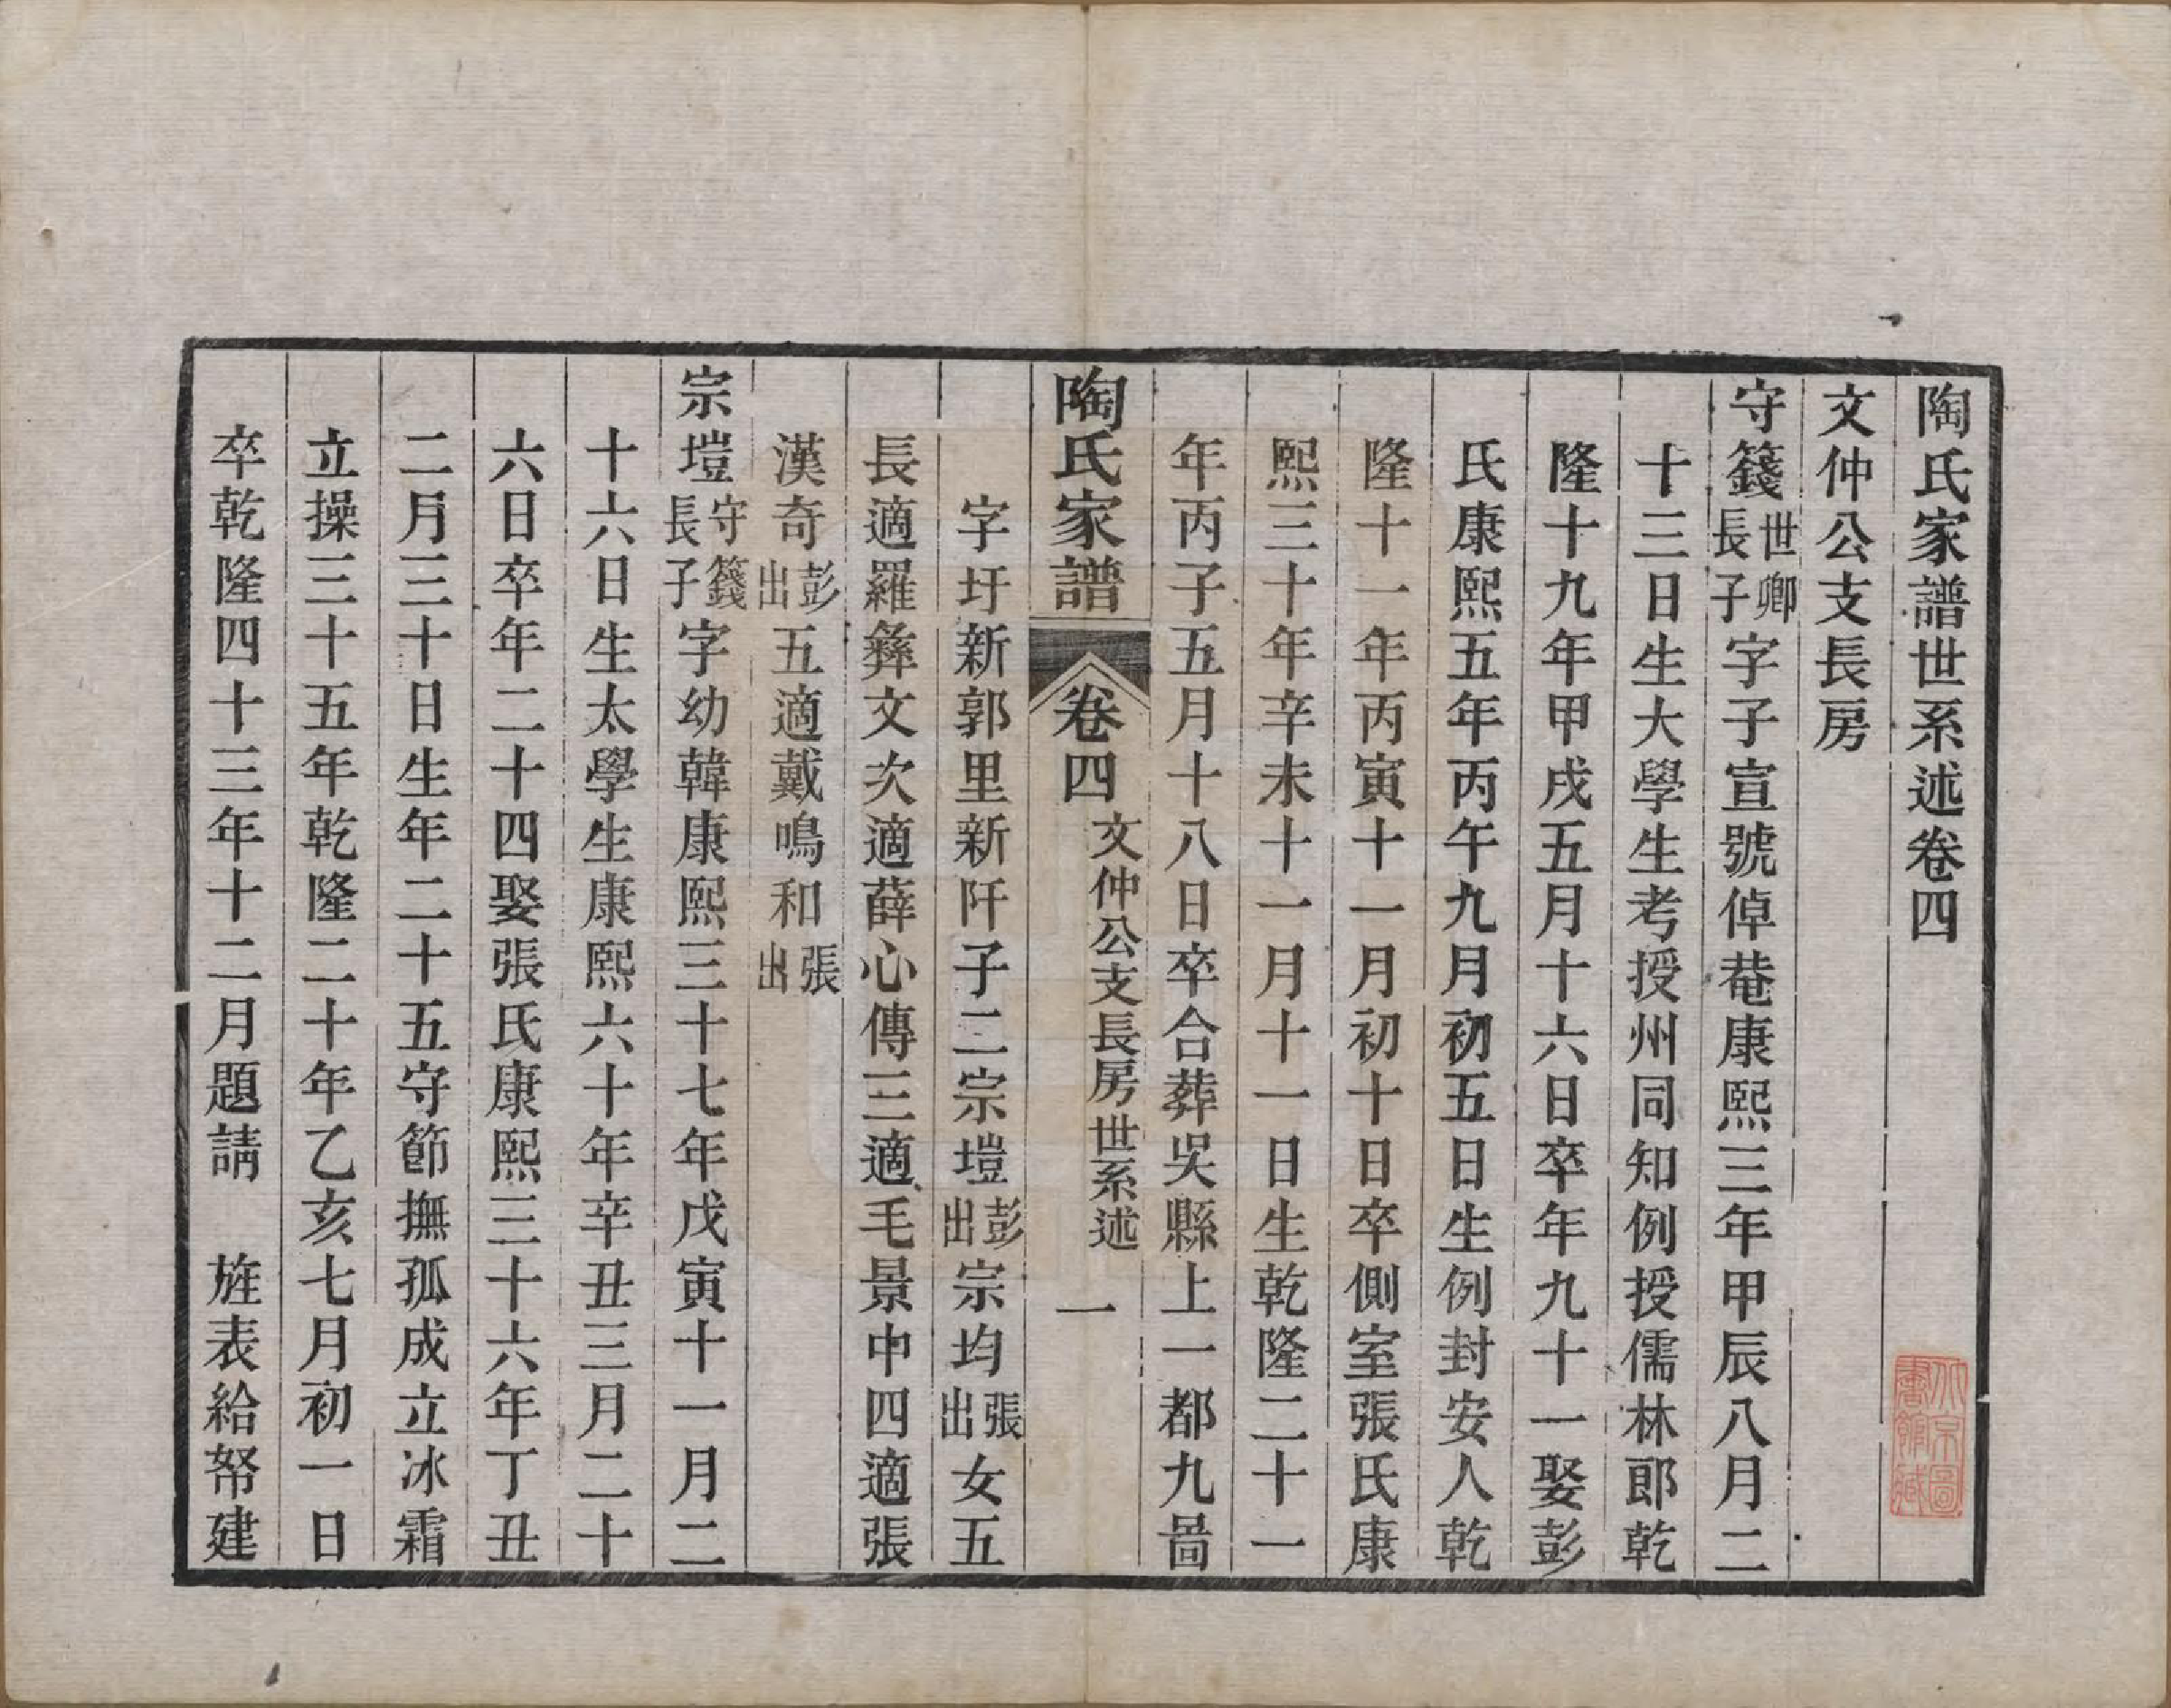 陶氏家譜世系述卷四
文仲公支長房
守篯世卿長子字子宣號倬菴康熙三年甲辰八月二
十三日生大學生考授州同知例授儒林郎乾
隆十九年甲戌五月十六日卒年九十一娶彭
氏康熙五年丙午九月初五日生例封安人乾
隆十一年丙寅十一月初十日卒側室張氏康
熙三十年辛未十一月十一日生乾隆二十一
年丙子五月十八日卒合葬吳縣上一都九啚
陶氏家譜 卷四 文仲公支長房世系述 一
字圩新郭里新阡子二宗塏彭出宗均張出女五
長適羅彝文次適薛心傳三適毛景中四適張
漢奇彭出五適戴鳴和張出
宗塏守篯長子字幼韓康熙三十七年戊寅十一月二
十六日生太學生康熙六十年辛丑三月二十
六日卒年二十四娶張氏康熙三十六年丁丑
二月三十日生年二十五守節撫孤成立冰霜
立操三十五年乾隆二十年乙亥七月初一日
卒乾隆四十三年十二月題請 旌表給帑建
北京圖書館藏